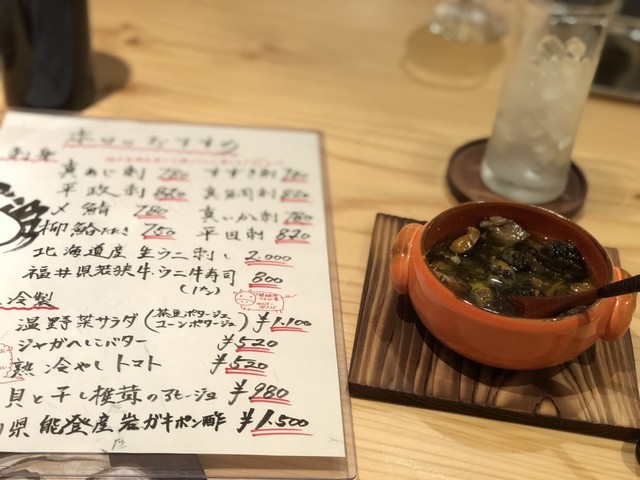 本日のおすすめ
真あじ刺 780 すずき刺 780
平政刺 820
〆鯖 780 真いか刺 780
柳鮨たたき 750 820
北海道産生ウニ刺し 2,000
福井県若狭牛ウニ牛寿司 800
冷製
温野菜サラダ(茶豆ポタージュ コーンポタージュ) ¥1.100
ジャガへしこバター ¥520
熟冷やしトマト ¥520
貝と干し椎茸のアヒージョ ¥980
県能登産岩ガキポン酢 ¥1.500